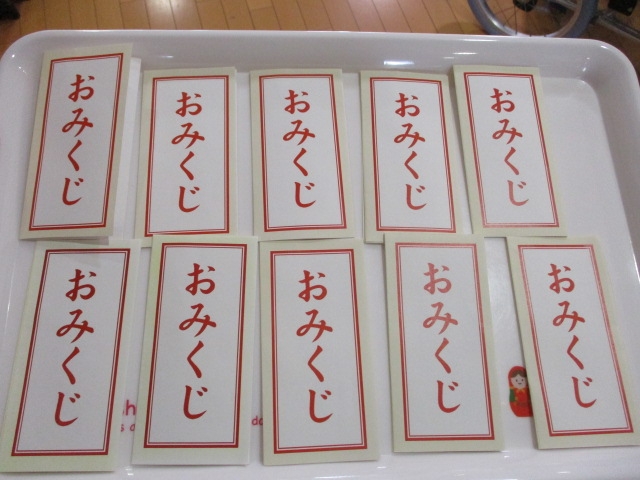 おみくじ
おみくじ
おみくじ
おみくじ
おみくじ
おみくじ
おみくじ
おみくじ
おみくじ
おみくじ